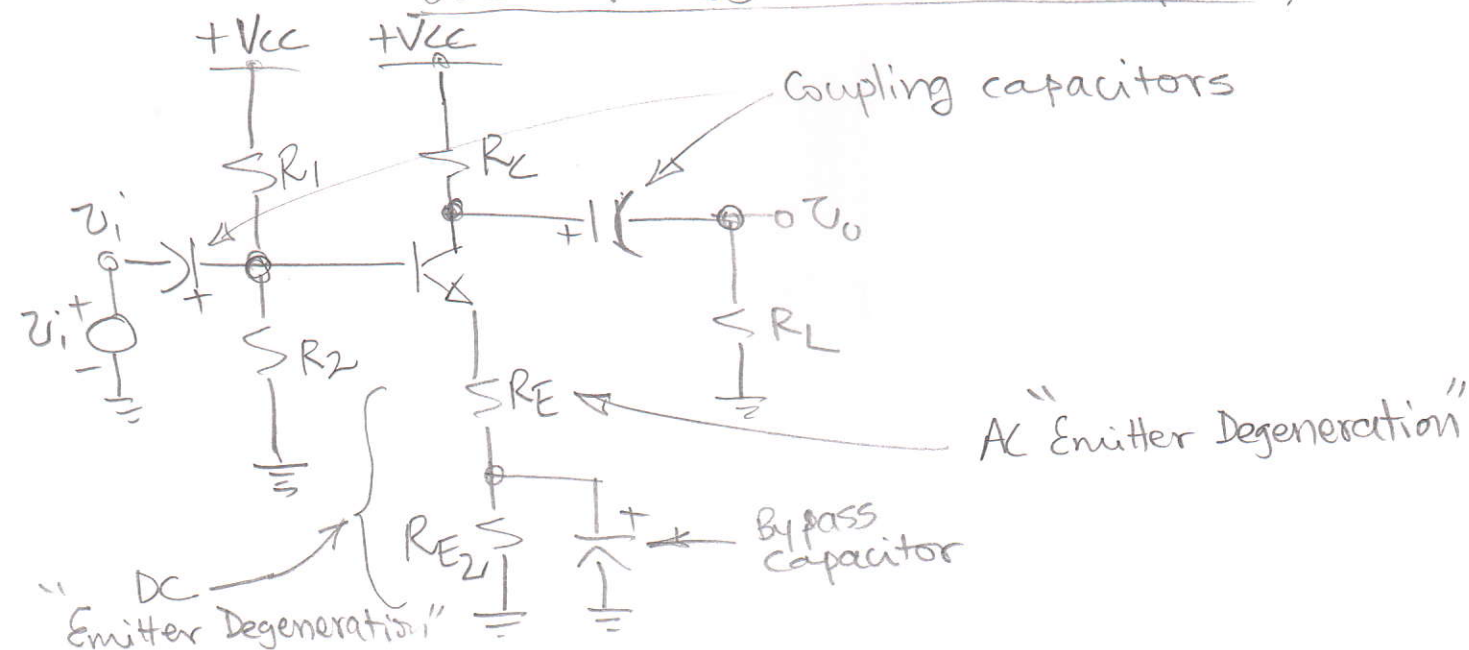 +Vcc +Vcc
Coupling capacitors
R1
RC
vi
+
+
vo
vi
+
-
R2
RL
RE
AC "Emitter Degeneration"
RE2
+
Bypass
Capacitor
" DC
Emitter Degeneration"